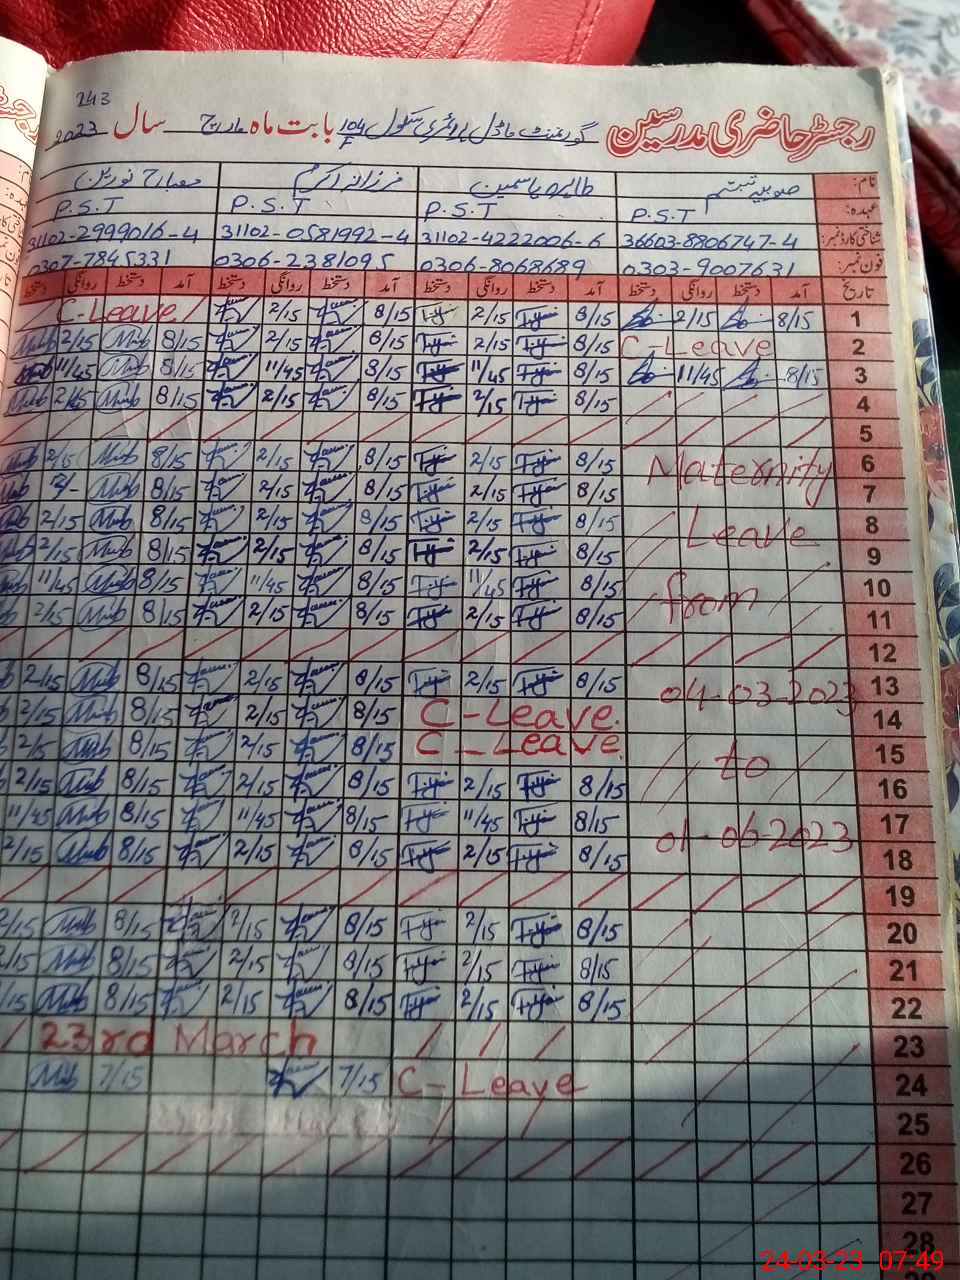 243
رجسٹر حاضری مدرسین گورنمنٹ ماڈل پرائمری سکول 104/F بابت ماہ مارچ سال 2023
نام: صوبیہ تبسم طاہرہ یاسمین فرزانہ اکرم مصباح نورین
عہدہ: P.S.T P.S.T P.S.T P.S.T
شناختی کارڈ نمبر: 36603-8806747-4 31102-4222006-6 31102-0581992-4 31102-2999016-4
فون نمبر: 0303-9007631 0306-8068689 0306-2381095 0307-7845331
تاریخ آمد دستخط روانگی دستخط آمد دستخط روانگی دستخط آمد دستخط روانگی دستخط آمد دستخط روانگی دستخط
1 8/15 2/15 8/15 2/15 8/15 2/15 C-Leave
2 C-Leave 8/15 2/15 8/15 2/15 8/15 2/15
3 8/15 11/45 8/15 11/45 8/15 11/45 8/15 11/45
4 8/15 2/15 8/15 2/15 8/15 2/15
5
6 Maternity 8/15 2/15 8/15 2/15 8/15 2/15
7 8/15 2/15 8/15 2/15 8/15 2/-
8 Leave 8/15 2/15 8/15 2/15 8/15 2/15
9 8/15 2/15 8/15 2/15 8/15 2/15
10 from 8/15 11/45 8/15 11/45 8/15 11/45
11 8/15 2/15 8/15 2/15 8/15 2/15
12
13 04-03-2023 8/15 2/15 8/15 2/15 8/15 2/15
14 C-Leave 8/15 2/15 8/15 2/15
15 to C-Leave 8/15 2/15 8/15 2/5
16 8/15 2/15 8/15 2/15 8/15 2/15
17 01-06-2023 8/15 11/45 8/15 11/45 8/15 11/45
18 8/15 2/15 8/15 2/15 8/15 2/15
19
20 8/15 2/15 8/15 2/15 8/15 2/15
21 8/15 2/15 8/15 2/15 8/15 2/15
22 8/15 2/15 8/15 2/15 8/15 2/15
23 23rd March
24 C-Leave 7/15 7/15
25
26
27
28
24-03-23 07:49